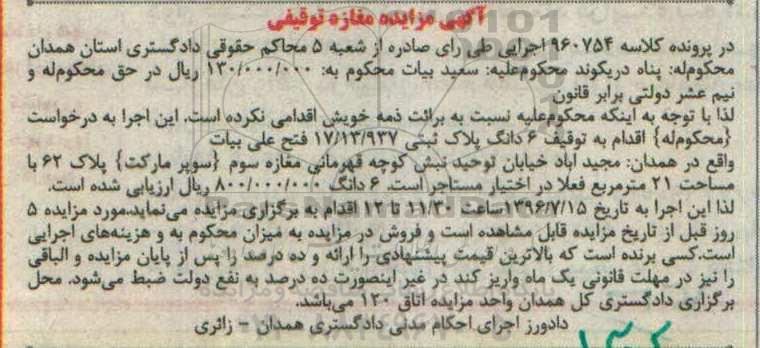 آگهی مزایده مغازه توقیفی
در پرونده کلاسه ۹۶۰۷۵۴ اجرایی طی رای صادره از شعبه ۵ محاکم حقوقی دادگستری استان همدان
محکوم‌له: پناه دریکوند محکوم‌علیه: سعید بیات محکوم به: ۱۳۰/۰۰۰/۰۰۰ ریال در حق محکوم‌له و
نیم عشر دولتی برابر قانون
لذا با توجه به اینکه محکوم‌علیه نسبت به برائت ذمه خویش اقدامی نکرده است، این اجرا به درخواست
{محکوم‌له} اقدام به توقیف ۶ دانگ پلاک ثبتی ۱۷/۱۳/۹۳۷ فتح علی بیات
واقع در همدان: مجید آباد خیابان توحید نبش کوچه قهرمانی مغازه سوم {سوپر مارکت} پلاک ۶۲ با
مساحت ۲۱ مترمربع فعلا در اختیار مستاجر است. ۶ دانگ ۸۰۰/۰۰۰/۰۰۰ ریال ارزیابی شده است.
لذا این اجرا به تاریخ ۱۳۹۶/۷/۱۵ ساعت ۱۱/۳۰ تا ۱۲ اقدام به برگزاری مزایده می‌نماید.مورد مزایده ۵
روز قبل از تاریخ مزایده قابل مشاهده است و فروش در مزایده به میزان محکوم به و هزینه‌های اجرایی
است.کسی برنده است که بالاترین قیمت پیشنهادی را ارائه و ده درصد را پس از پایان مزایده و الباقی
را نیز در مهلت قانونی یک ماه واریز کند در غیر اینصورت ده درصد به نفع دولت ضبط می‌شود. محل
برگزاری دادگستری کل همدان واحد مزایده اتاق ۱۲۰ می‌باشد.
دادورز اجرای احکام مدنی دادگستری همدان - زائری